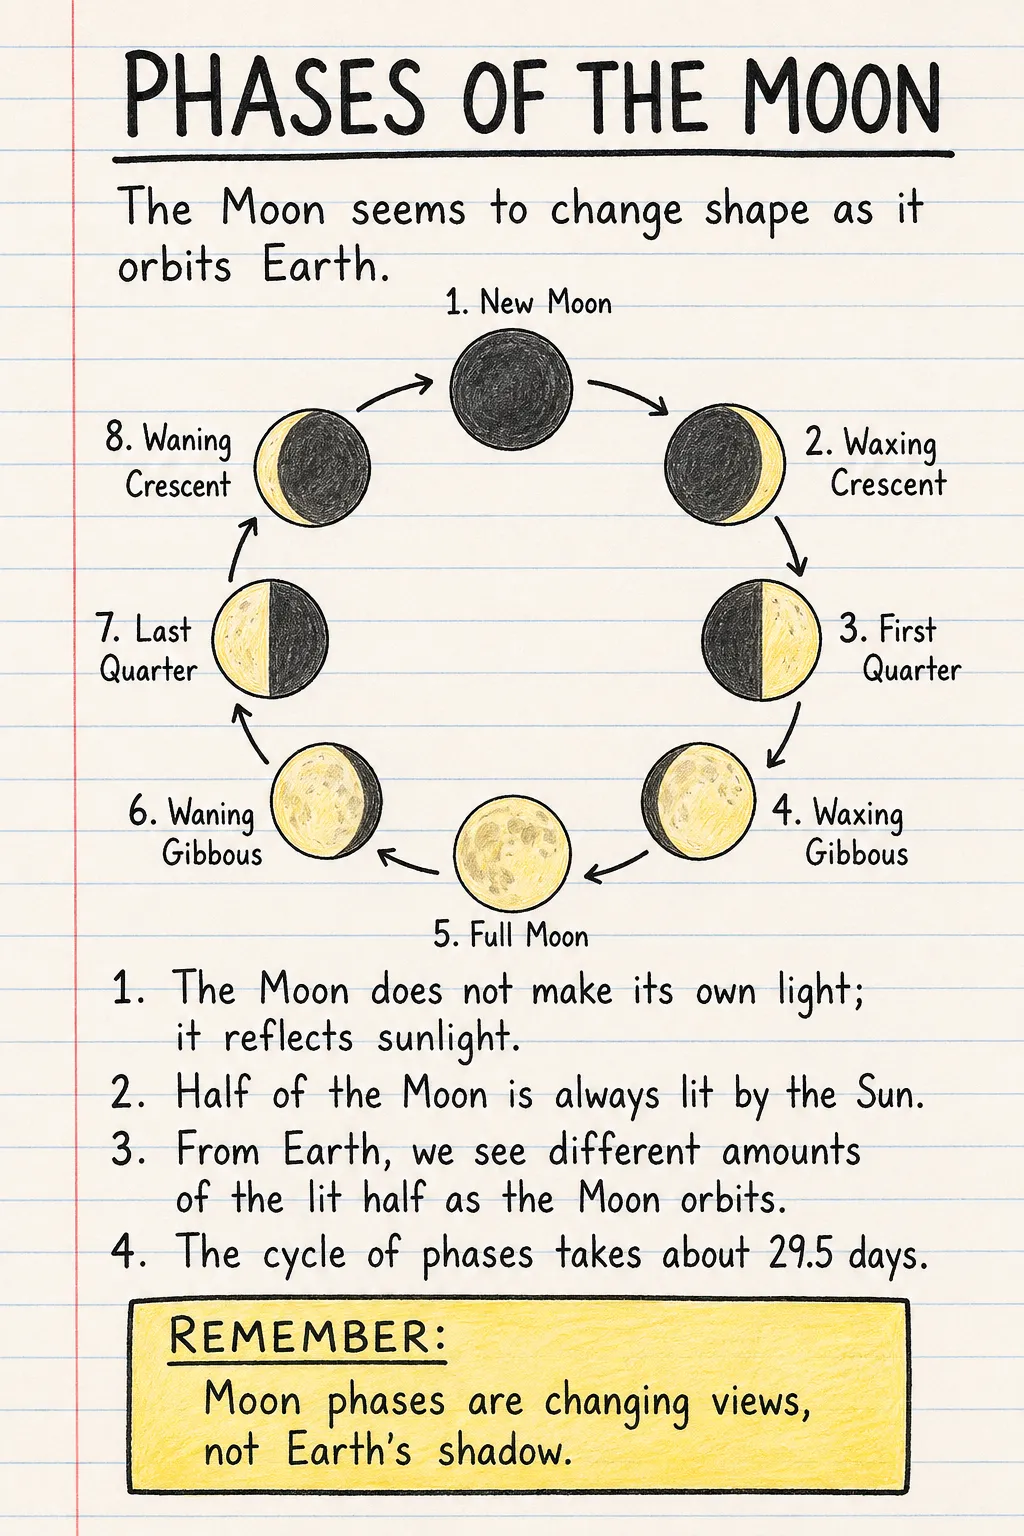 PHASES OF THE MOON
The Moon seems to change shape as it
orbits Earth.
1. New Moon
8. Waning
Crescent
2. Waxing
Crescent
7. Last
Quarter
3. First
Quarter
6. Waning
Gibbous
4. Waxing
Gibbous
5. Full Moon
1. The Moon does not make its own light;
it reflects sunlight.
2. Half of the Moon is always lit by the Sun.
3. From Earth, we see different amounts
of the lit half as the Moon orbits.
4. The cycle of phases takes about 29.5 days.
REMEMBER:
Moon phases are changing views,
not Earth's shadow.